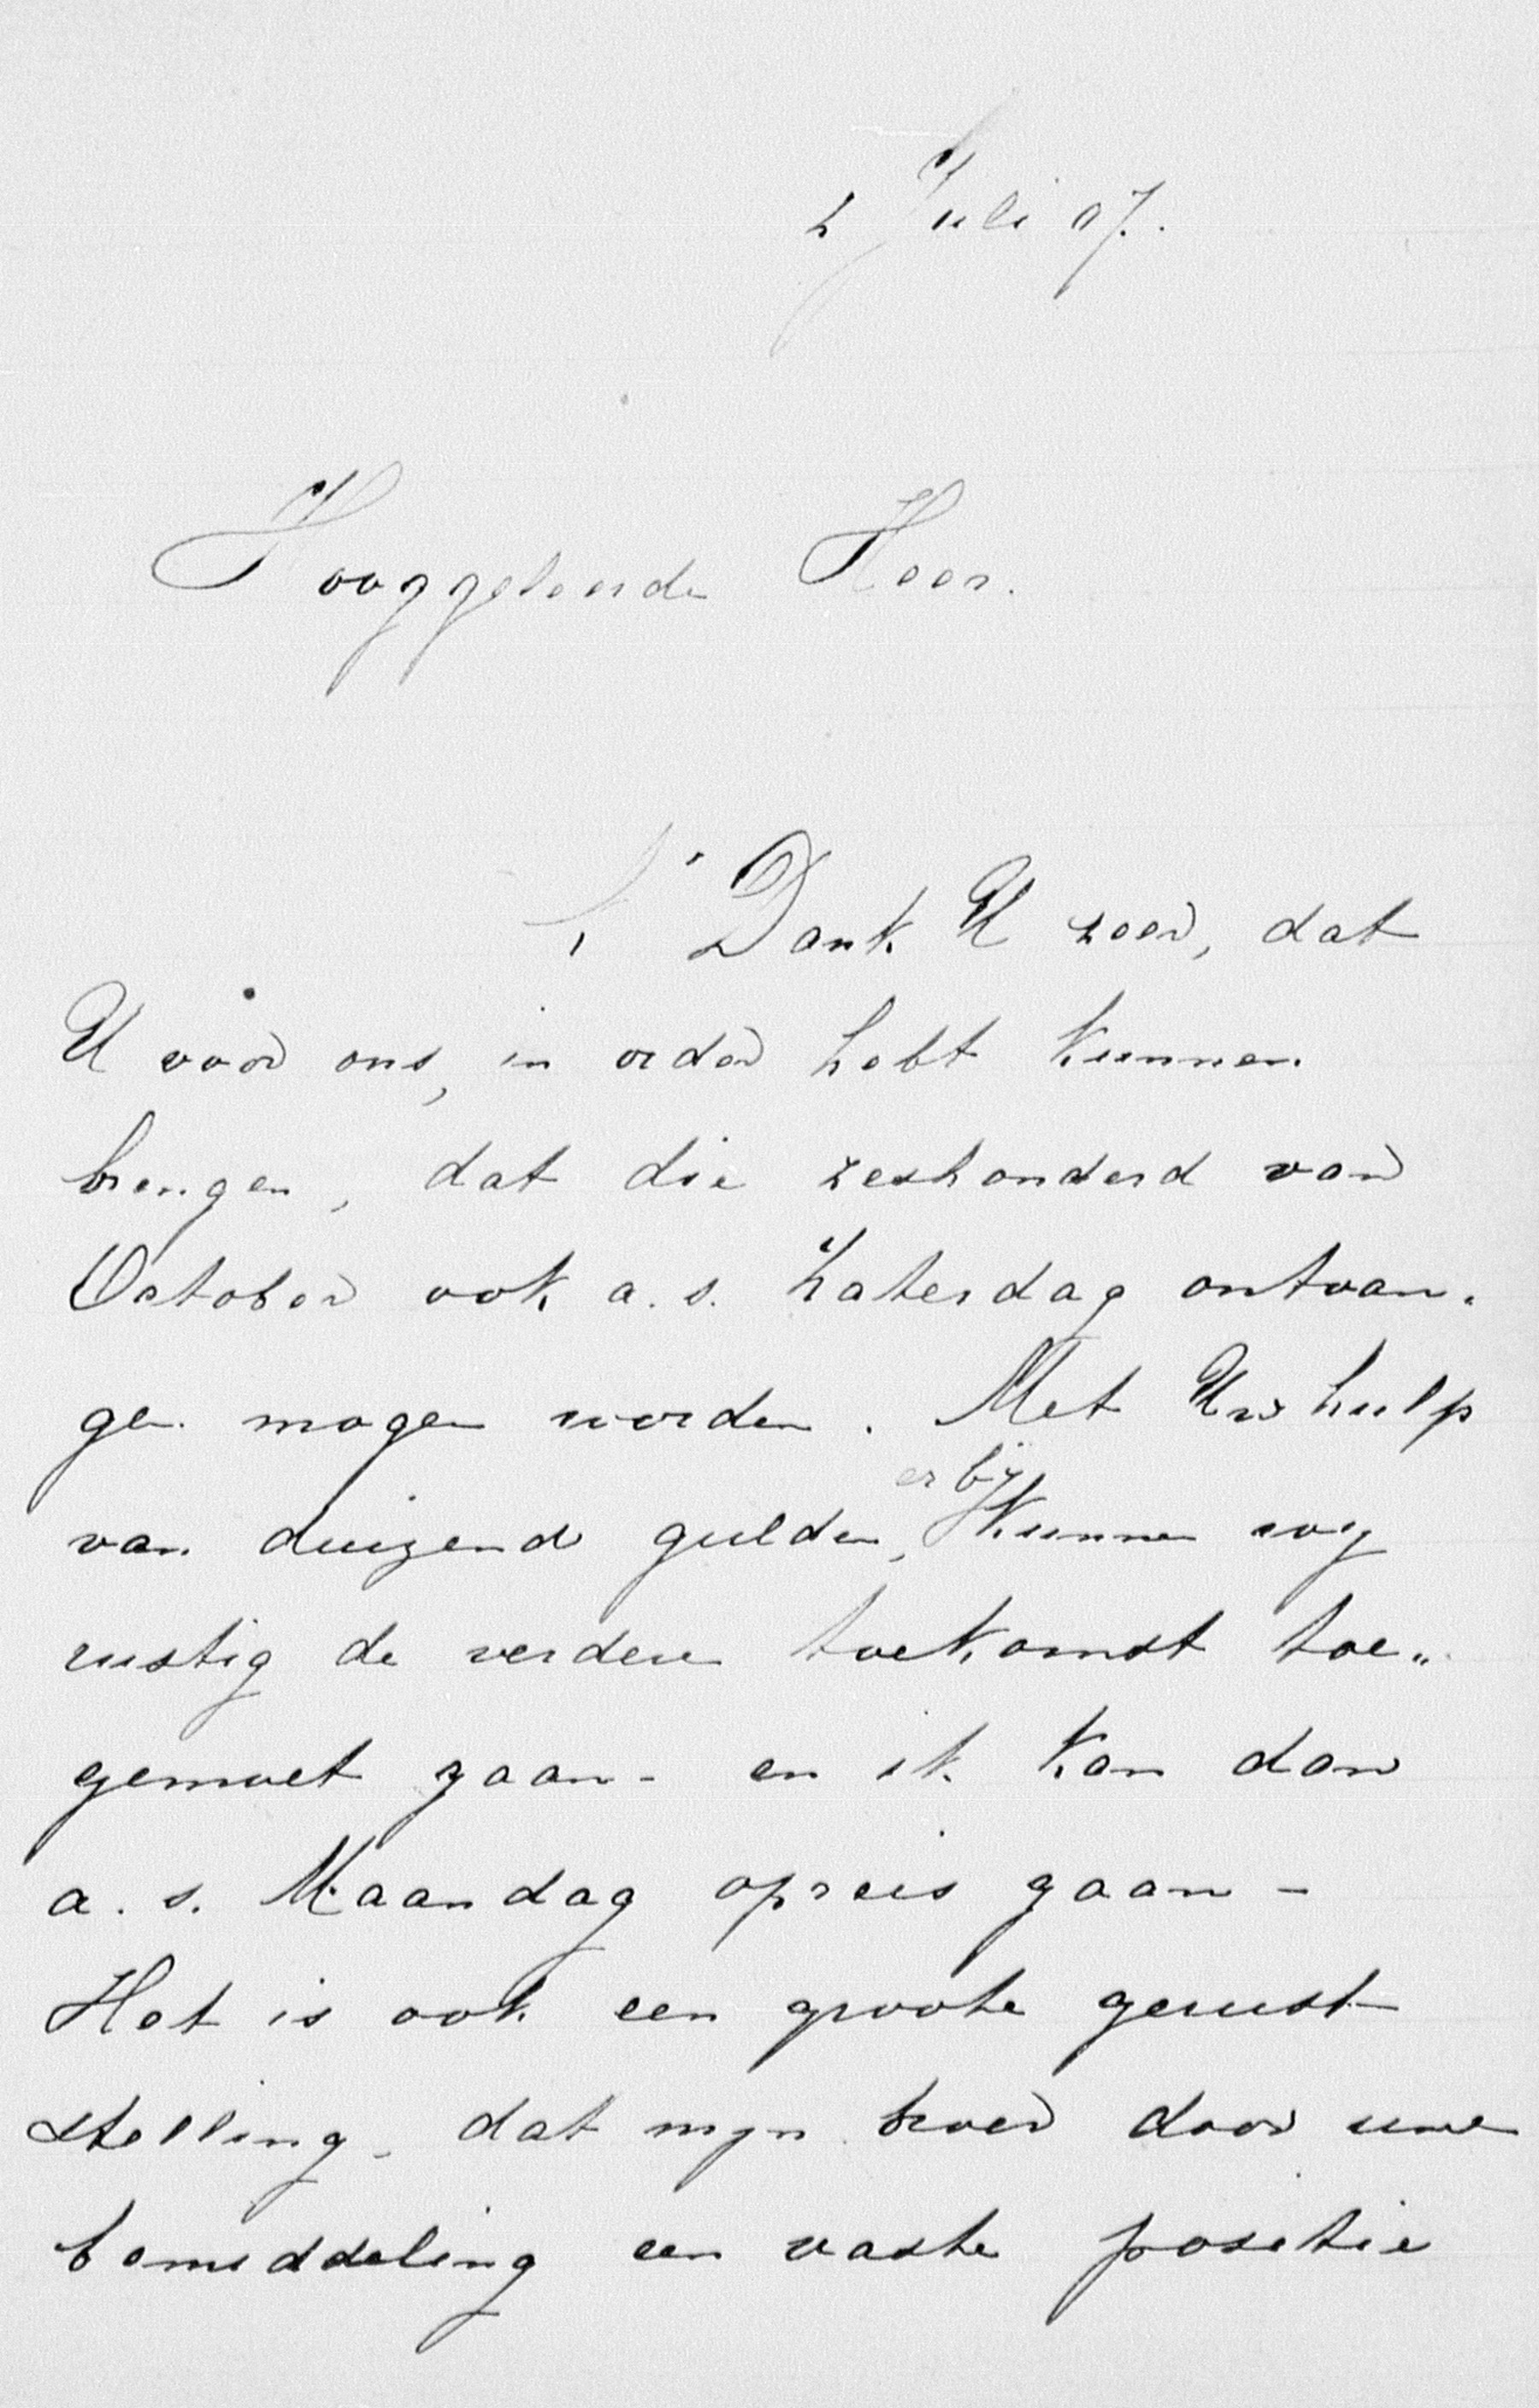 2 Juli 07.
Hooggeleerde Heer.
'k Dank U zeer, dat
U voor ons, in order hebt kunnen
brengen, dat die zeshonderd van
October ook a.s. Zaterdag ontvan„
gen mogen worden. Met Uw hulp
er bij
van duizend gulden, kunnen wij
rustig de verdere toekomst toe„
gemoet gaan - en ik kan dan
a.s. Maandag op reis gaan -
Het is ook een groote gerust
stelling - dat mijn broer door uwe
bemiddeling een vaste positie